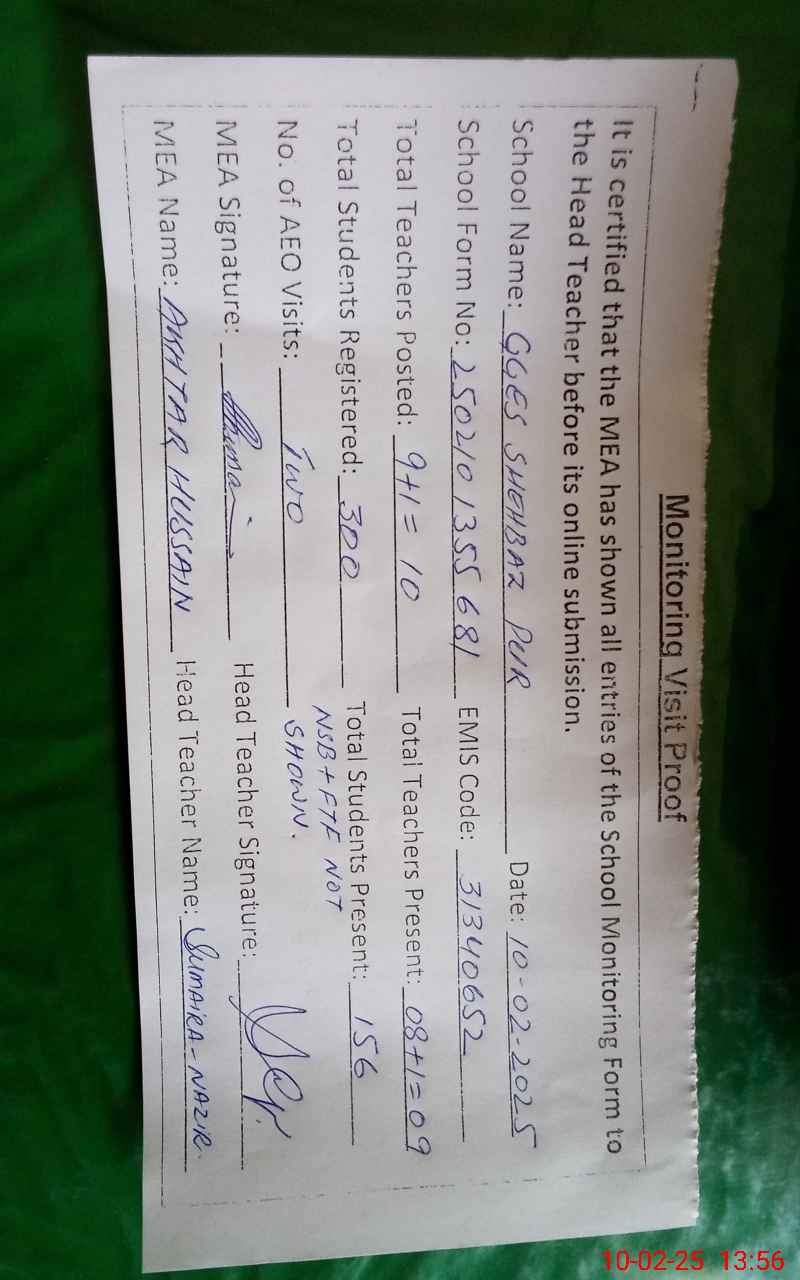 Monitoring Visit Proof
It is certified that the MEA has shown all entries of the School Monitoring Form to
the Head Teacher before its online submission.
School Name: GGES SHEHBAZ PUR Date: 10-02-2025
School Form No: 2502101355681 EMIS Code: 31340652
Total Teachers Posted: 9+1= 10 Total Teachers Present: 08+1=09
Total Students Registered: 300 Total Students Present: 156
NSB+FTF NOT
No. of AEO Visits: Two SHOWN.
MEA Signature: Head Teacher Signature:
MEA Name: AKHTAR HUSSAIN Head Teacher Name: SUMAIRA-NAZIR.
10-02-25 13:56